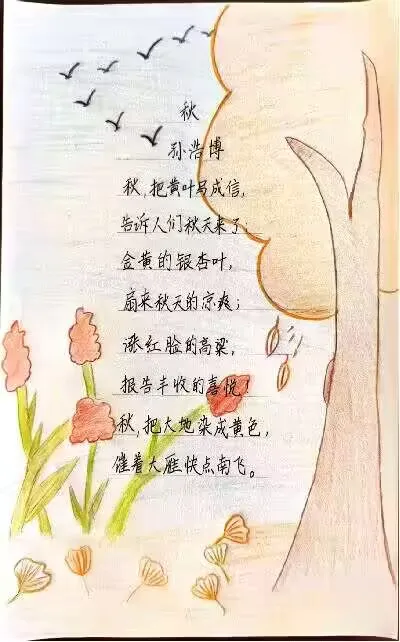 秋
孙浩博
秋,把黄叶写成信,
告诉人们秋天来了;
金黄的银杏叶,
扇来秋天的凉爽;
涨红脸的高粱,
报告丰收的喜悦!
秋,把大地染成黄色,
催着大雁快点南飞。